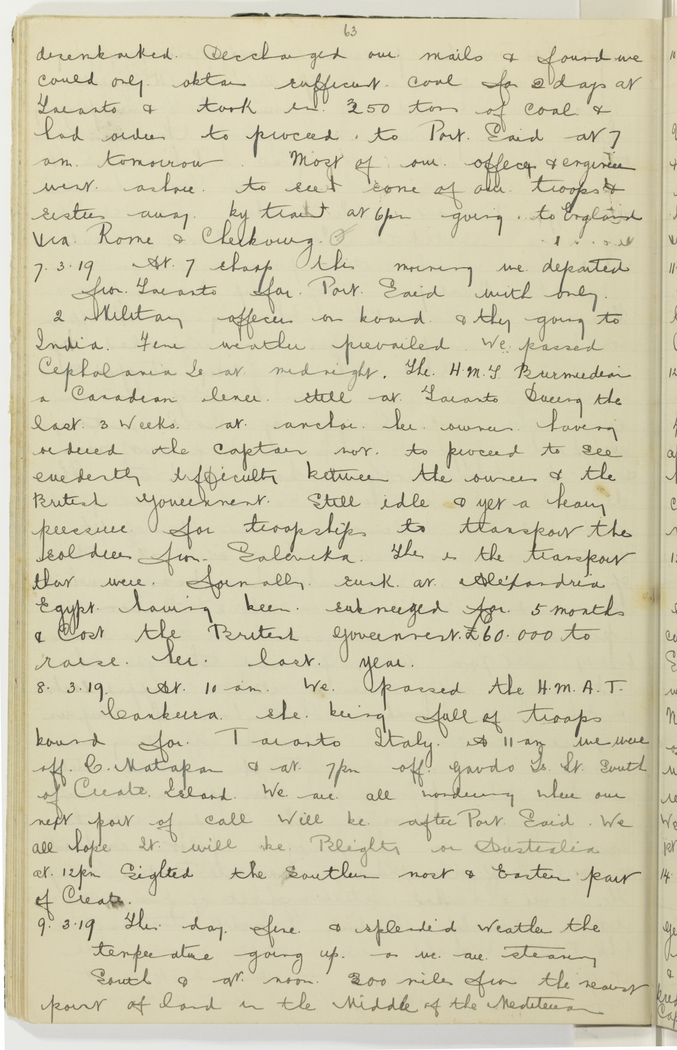 63
disembarked. Decharged our mails & found we
could only obtain sufficient coal for 2 days at
Taranto & took in 350 tons of coal &
had orders to proceed to Port Said at 7
am tomorrow. Most of our officers & engineers
went ashore to see some of our troops &
sisters away by train at 6pm going to England
via Rome & Cherbourg.
7.3.19 At 7 sharp this morning we departed
from Taranto for Port Said with only
2 Military officers on board & they going to
India. Fine weather prevailed. We passed
Cephalania Is at midnight. The H.M.T Burmudian
a Canadian liner still at Taranto During the
last 3 Weeks at anchor her owners having
ordered the captain not to proceed to sea
evedently difficulty between the owners & the
British Government. Still idle & yet a heavy
pressure for troopships to transport the
soldiers from Salonika. This is the transport
that were formally sunk at Alexandria
Egypt having been submerged for 5 months
& Cost the British Government £60.000 to
raise her last year.
8.3.19. At 10 am. We passed the H.M.A.T.
Canberra she being full of troops
bound for Taranto Italy. At 11 am we were
off C. Matapan & at 7pm off Gavdo Is. Lt. South
of Create Island. We are all wondering where our
next port of call will be after Port Said. We
all hope it will be Blighty or Australia
at 12pm Sighted the Southern most & Eastern part
of Create.
9.3.19 This day fine & splendid weather the
temperature going up as we are steaming
South & at noon 200 miles from the nearest
point of land in the Middle of the Mediterean